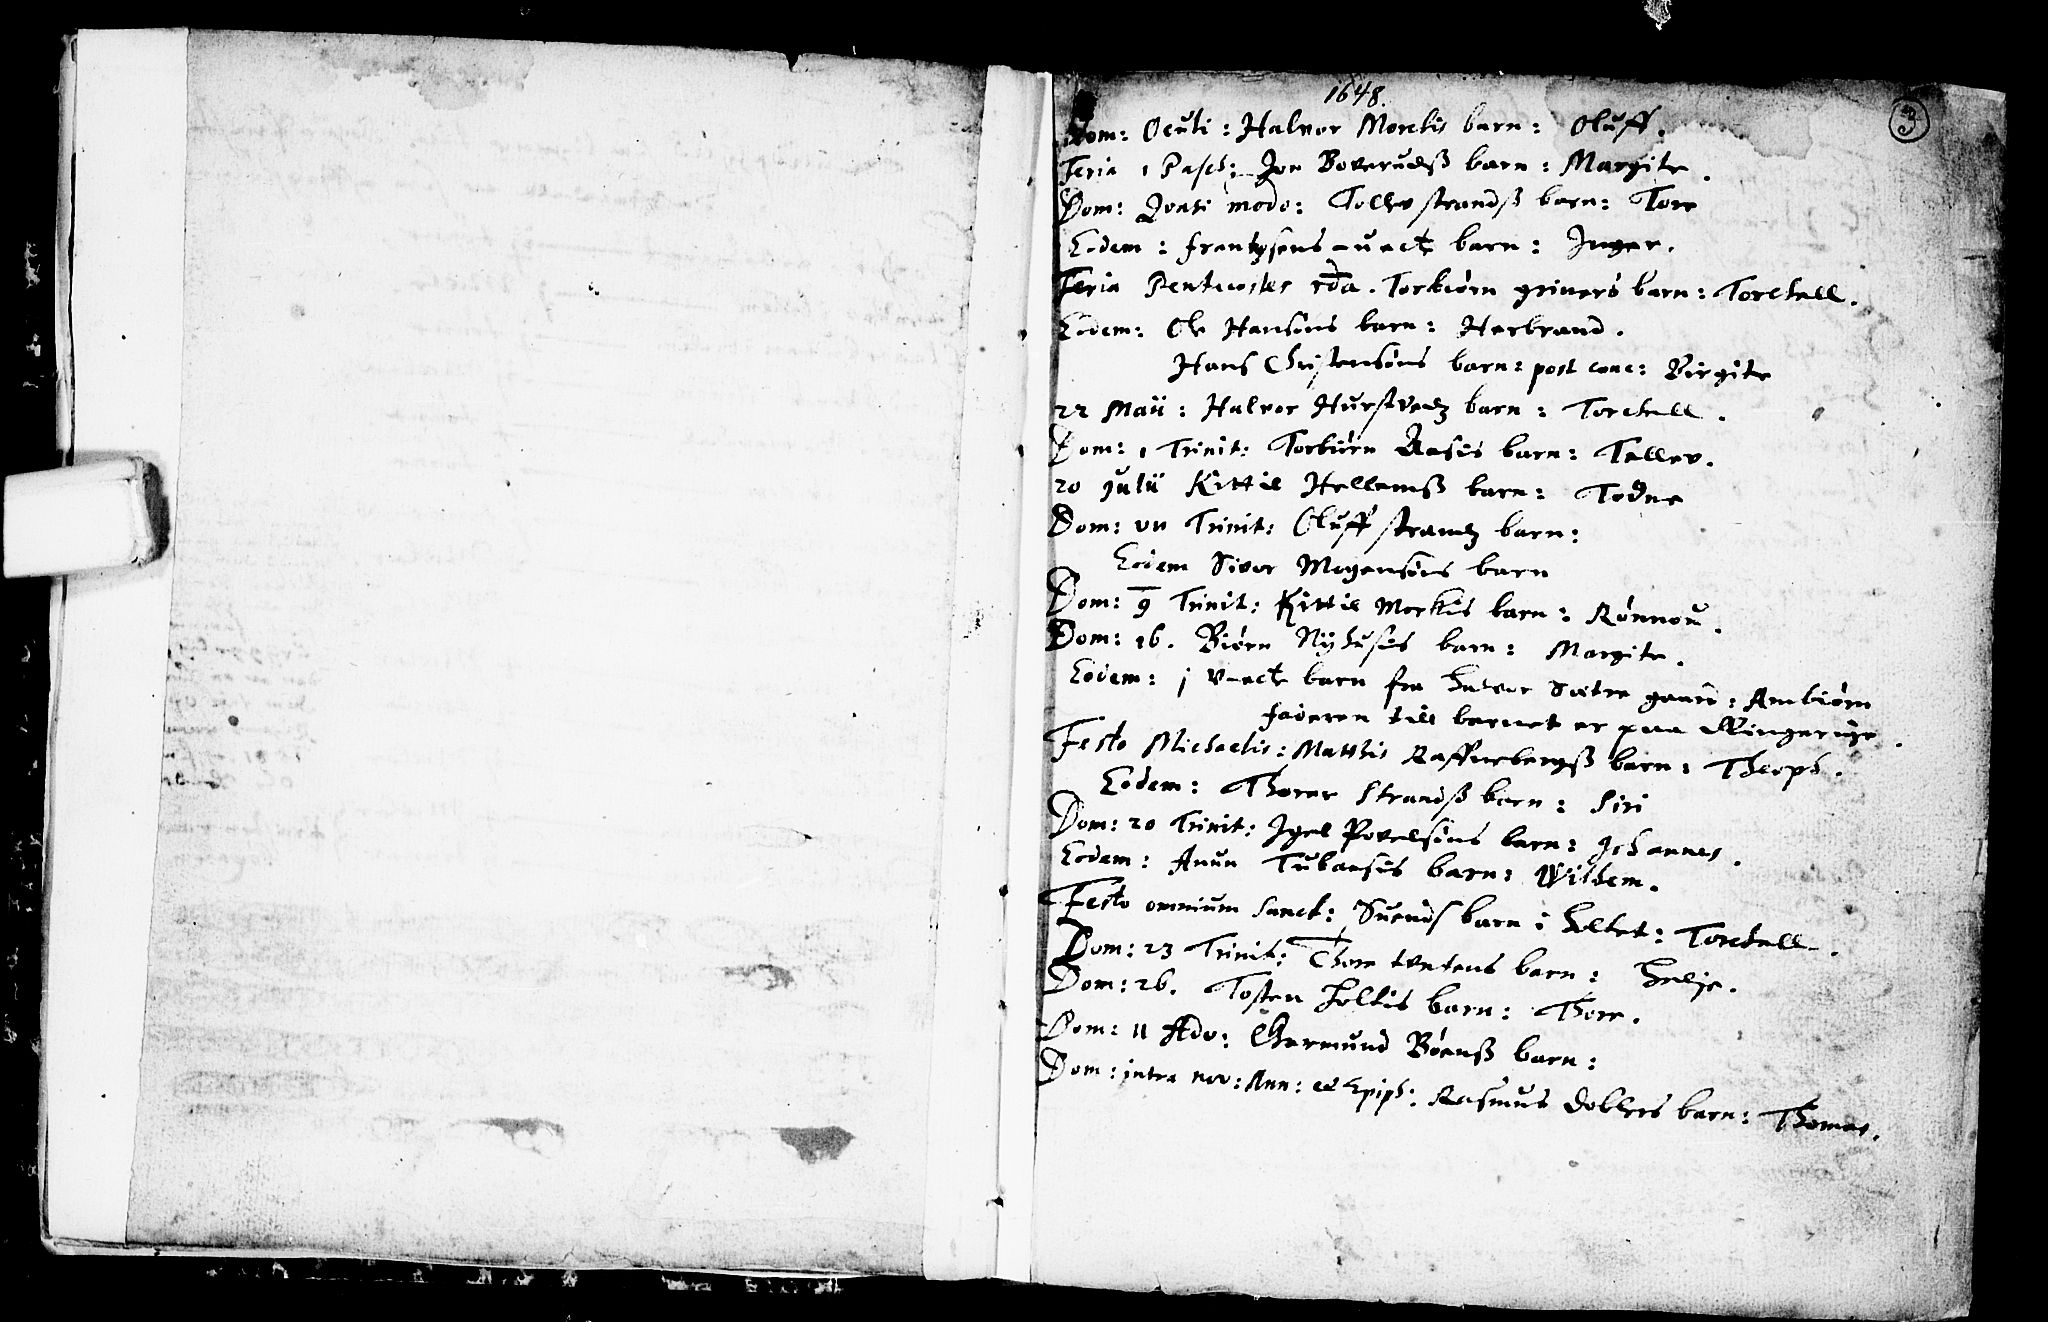 1648.
3
Dom: Oculi: Halvor Morckis barn: Oluff.
Feria 1 Pasch: Jon Boverudß barn: Margite.
Dom: Qvasi modo: Tollev strandß barn: Tore
Eodem: frantzsens u-ect barn: Inger.
Feria Pentecostes 2da. Torbiørn griners barn: Torchell.
Eodem: Ole Hansøns barn: Herbrand.
Hans Christensøns barn: post conc: Birgite
22 Maii: Halvor Hurstvedz barn: Torchell.
Dom: 1 Trinit: Torbiørn Aasis barn: Tellev.
20 Julii Kittil Hellemß barn: Todne
Dom: VII Trinit: Oluff strandz barn:
Eodem Siver Mogensøns barn
Dom: 9 Trinit: Kittil Morkis barn: Rønnou.
Dom: 16. Biørn Nÿhusis barn: Margite.
Eodem: j V-ecte barn fra Halvor Sætre gaard: Ambiørn
faderen till barnet er paa Ringerige.
Festo Michaelis: Matthis Raffnebergß barn: Theoph.
Eodem: Thorer Strandß barn: Siri
Dom: 20 Trinit: Igel Povelsøns barn: Johannes.
Eodem: Anun Tubansis barn: Wilhem.
Festo omnium sanct: Suends barn i holtet: Torchell.
Dom: 23 Trinit: Thore tvetens barn: Helje.
Dom: 26. Tosten holtis barn: Thore.
Dom: II Adv: Germund Bøenß barn:
Dom: intra nov: Ann: et Epiph: Rasmus doblers barn: Thomas.